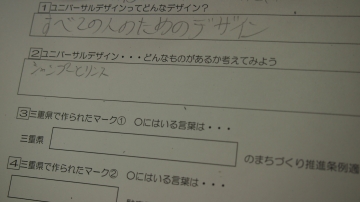 1 ユニバーサルデザインってどんなデザイン？
すべての人のためのデザイン
2 ユニバーサルデザイン・・・どんなものがあるか考えてみよう
シャンプーとリンス
3 三重県で作られたマーク① 〇にはいる言葉は・・・
三重県 のまちづくり推進条例適
4 三重県で作られたマーク② 〇にはいる言葉は・・・